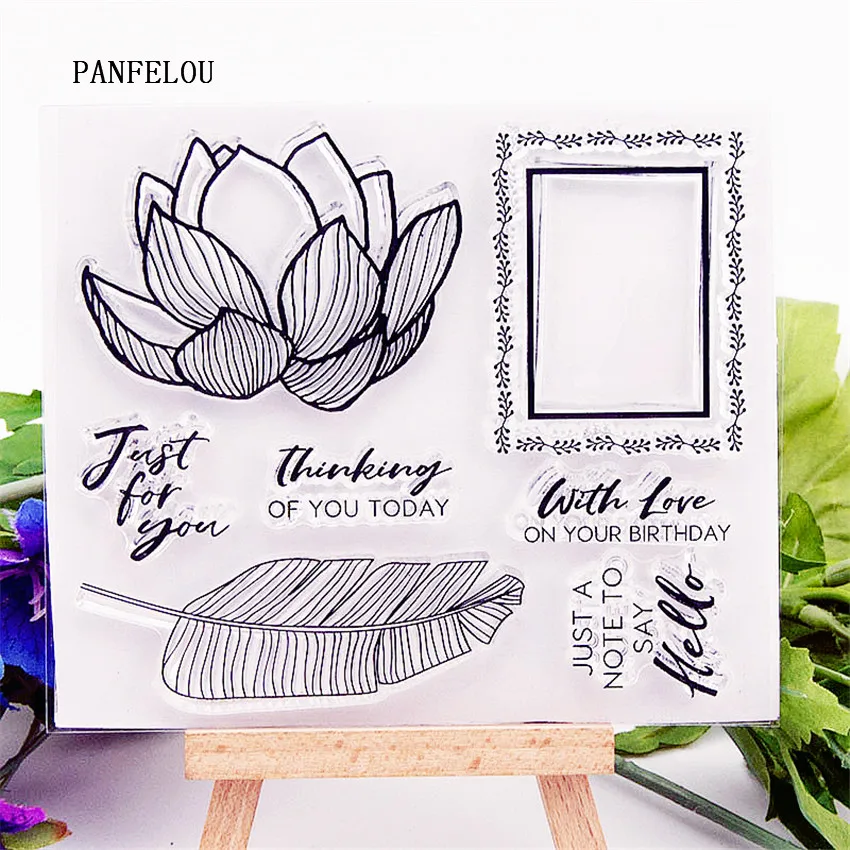 PANFELOU
Just
for
you
Thinking
OF YOU TODAY
With Love
ON YOUR BIRTHDAY
JUST A
NOTE TO
SAY
Hello